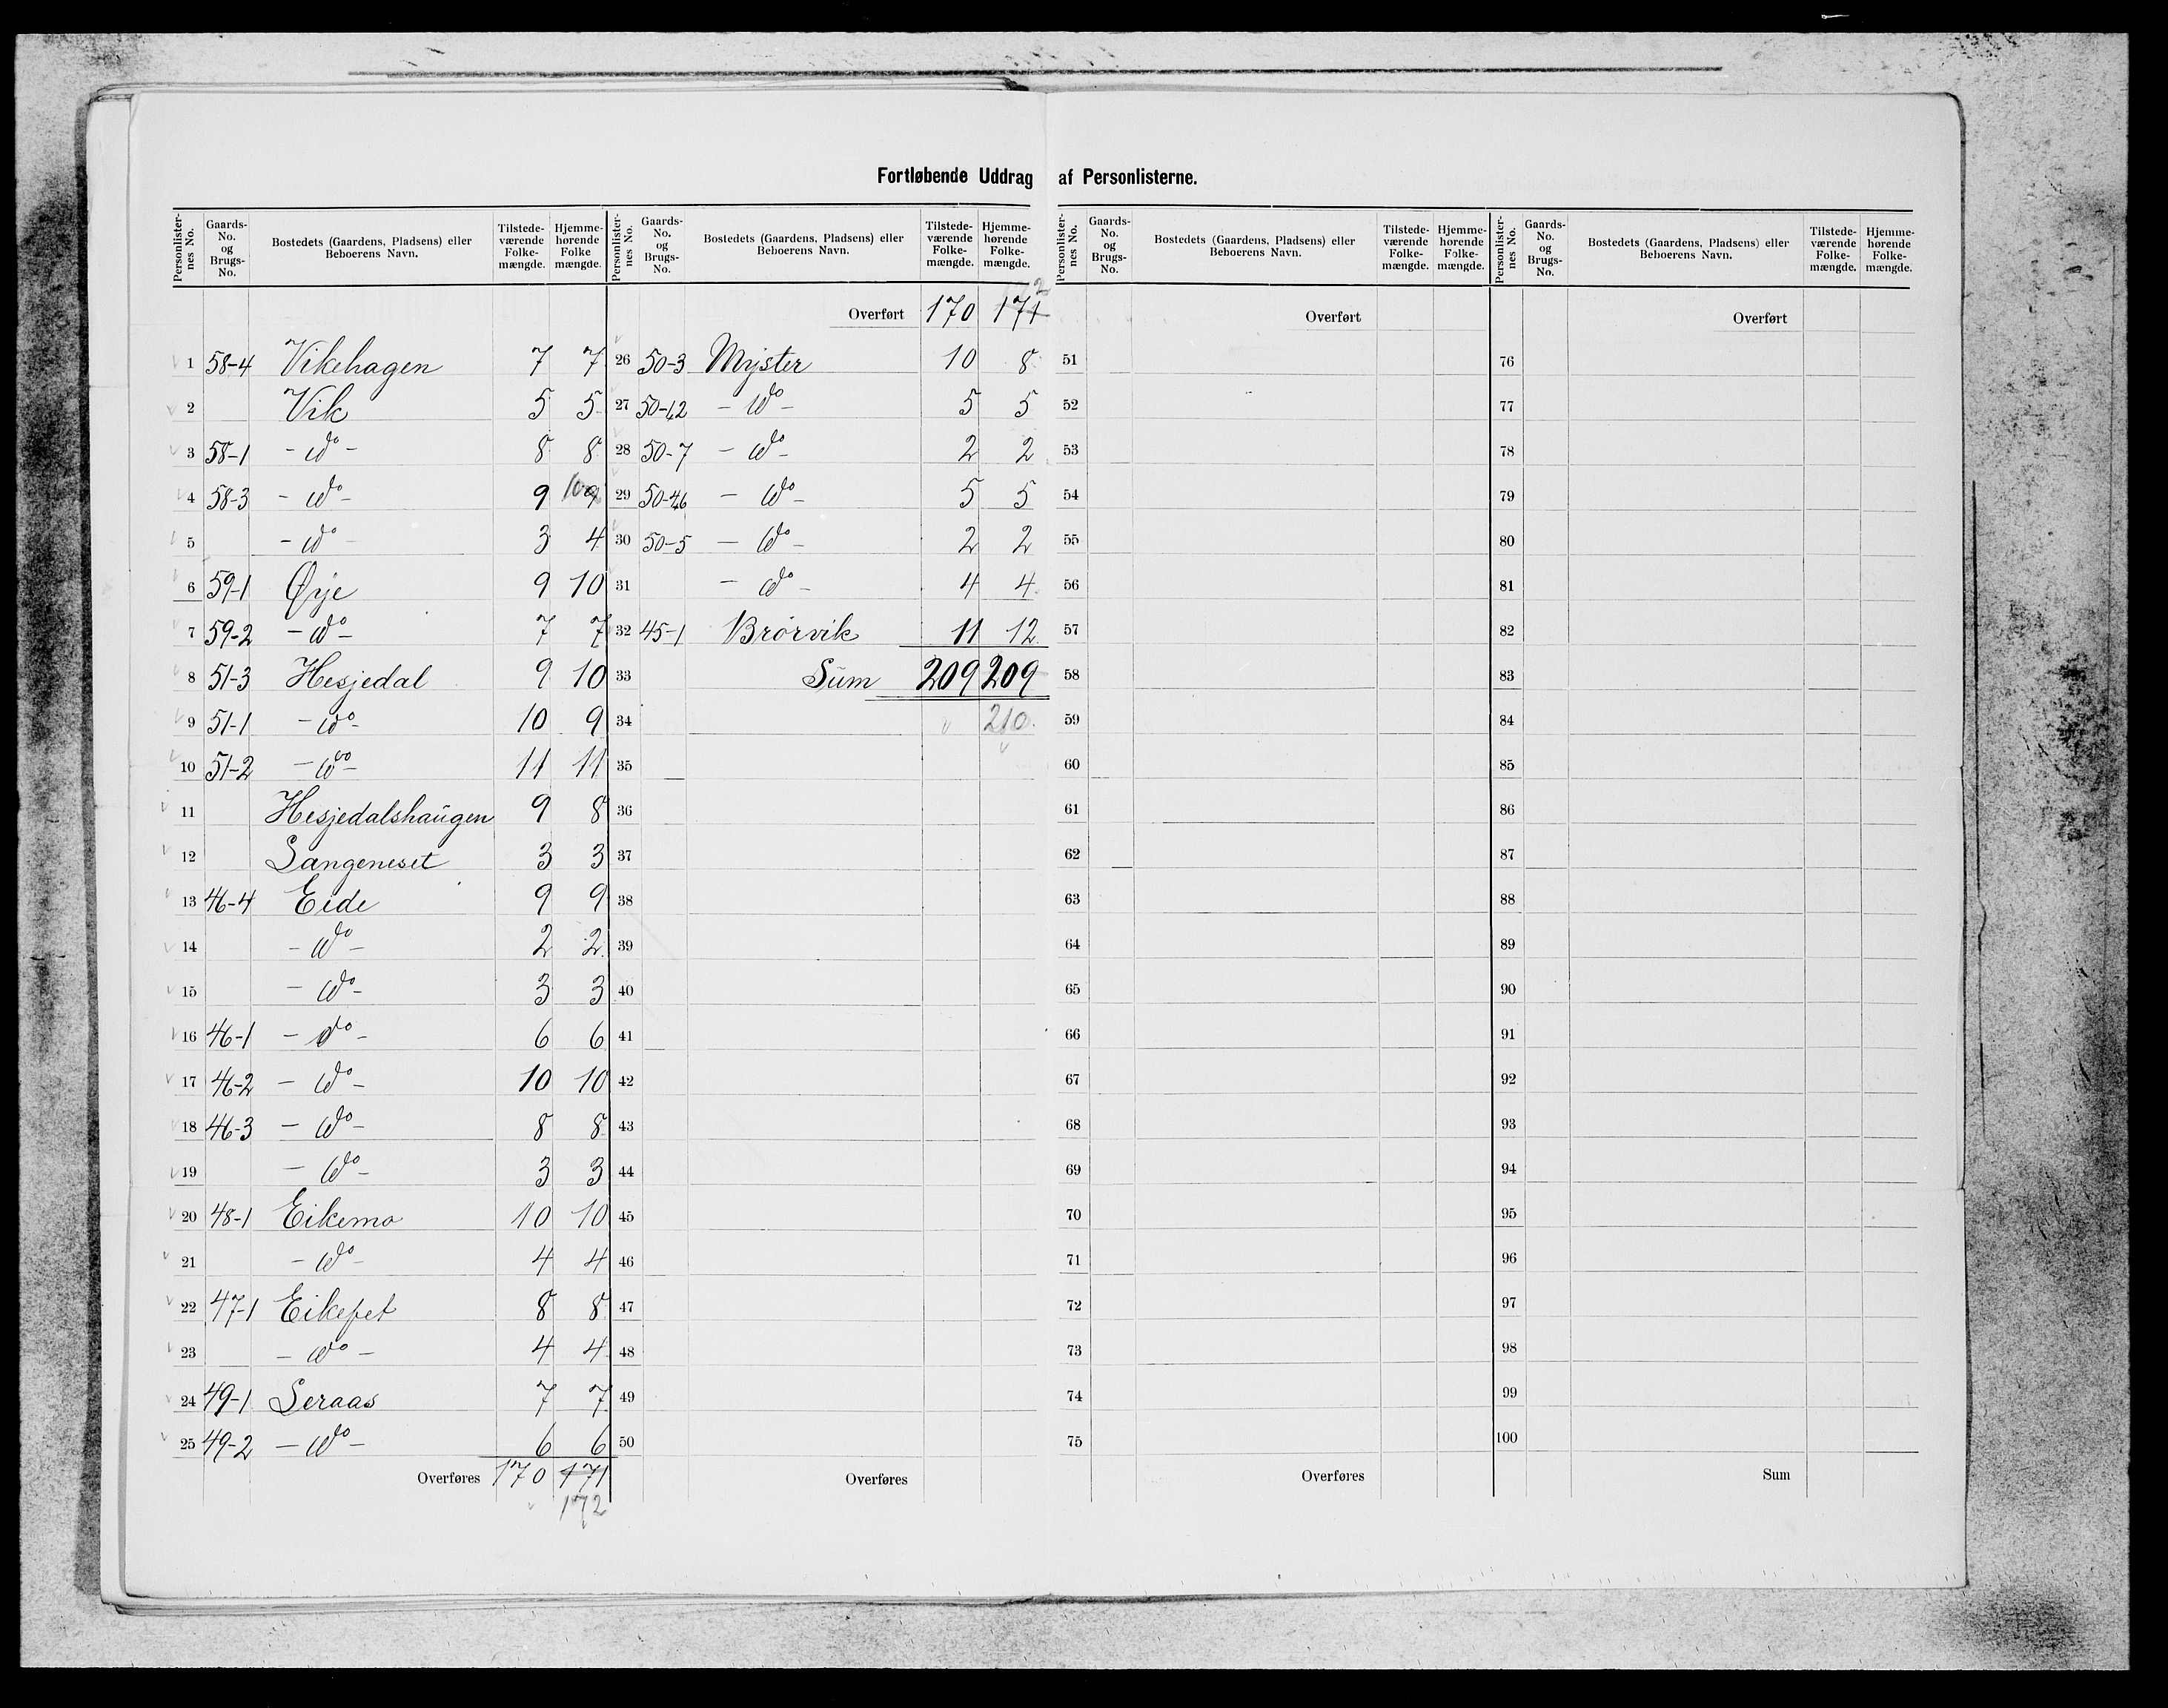 Fortløbende Uddrag af Personlisterne.
Personlisternes No. Gaards-No. og Brugs-No. Bostedets (Gaardens, Pladsens) eller Beboerens Navn. Tilstedeværende Folkemængde. Hjemmehørende Folkemængde.
1 58-4 Vikehagen 7 7
2 Vik 5 5
3 58-1 - do - 8 8
4 58-3 - do - 9 10 9
5 - do - 3 4
6 59-1 Øije 9 10
7 59-2 - do - 7 7
8 51-3 Hesjedal 9 10
9 51-1 - do - 10 9
10 51-2 - do - 11 11
11 Hesjedalshaugen 9 8
12 Langeneset 3 3
13 46-4 Eide 9 9
14 - do - 2 2
15 - do - 3 3
16 46-1 - do - 6 6
17 46-2 - do - 10 10
18 46-3 - do - 8 8
19 - do - 3 3
20 48-1 Eikemo 10 10
21 - do - 4 4
22 47-1 Eikefet 8 8
23 - do - 4 4
24 49-1 Leraas 7 7
25 49-2 - do - 6 6
Overføres 170 171
172
Personlisternes No. Gaards-No. og Brugs-No. Bostedets (Gaardens, Pladsens) eller Beboerens Navn. Tilstedeværende Folkemængde. Hjemmehørende Folkemængde.
Overført 170 171
26 50-3 Myster 10 8
27 50-12 - do - 5 5
28 50-7 - do - 2 2
29 - do - 5 5
30 50-5 - do - 2 2
31 - do - 4 4
32 45-1 Brørvik 11 12
33 Sum 209 209
34 210
35
36
37
38
39
40
41
42
43
44
45
46
47
48
49
50
Overføres
Personlisternes No. Gaards-No. og Brugs-No. Bostedets (Gaardens, Pladsens) eller Beboerens Navn. Tilstedeværende Folkemængde. Hjemmehørende Folkemængde.
Overført
51
52
53
54
55
56
57
58
59
60
61
62
63
64
65
66
67
68
69
70
71
72
73
74
75
Overføres
Personlisternes No. Gaards-No. og Brugs-No. Bostedets (Gaardens, Pladsens) eller Beboerens Navn. Tilstedeværende Folkemængde. Hjemmehørende Folkemængde.
Overført
76
77
78
79
80
81
82
83
84
85
86
87
88
89
90
91
92
93
94
95
96
97
98
99
100
Sum